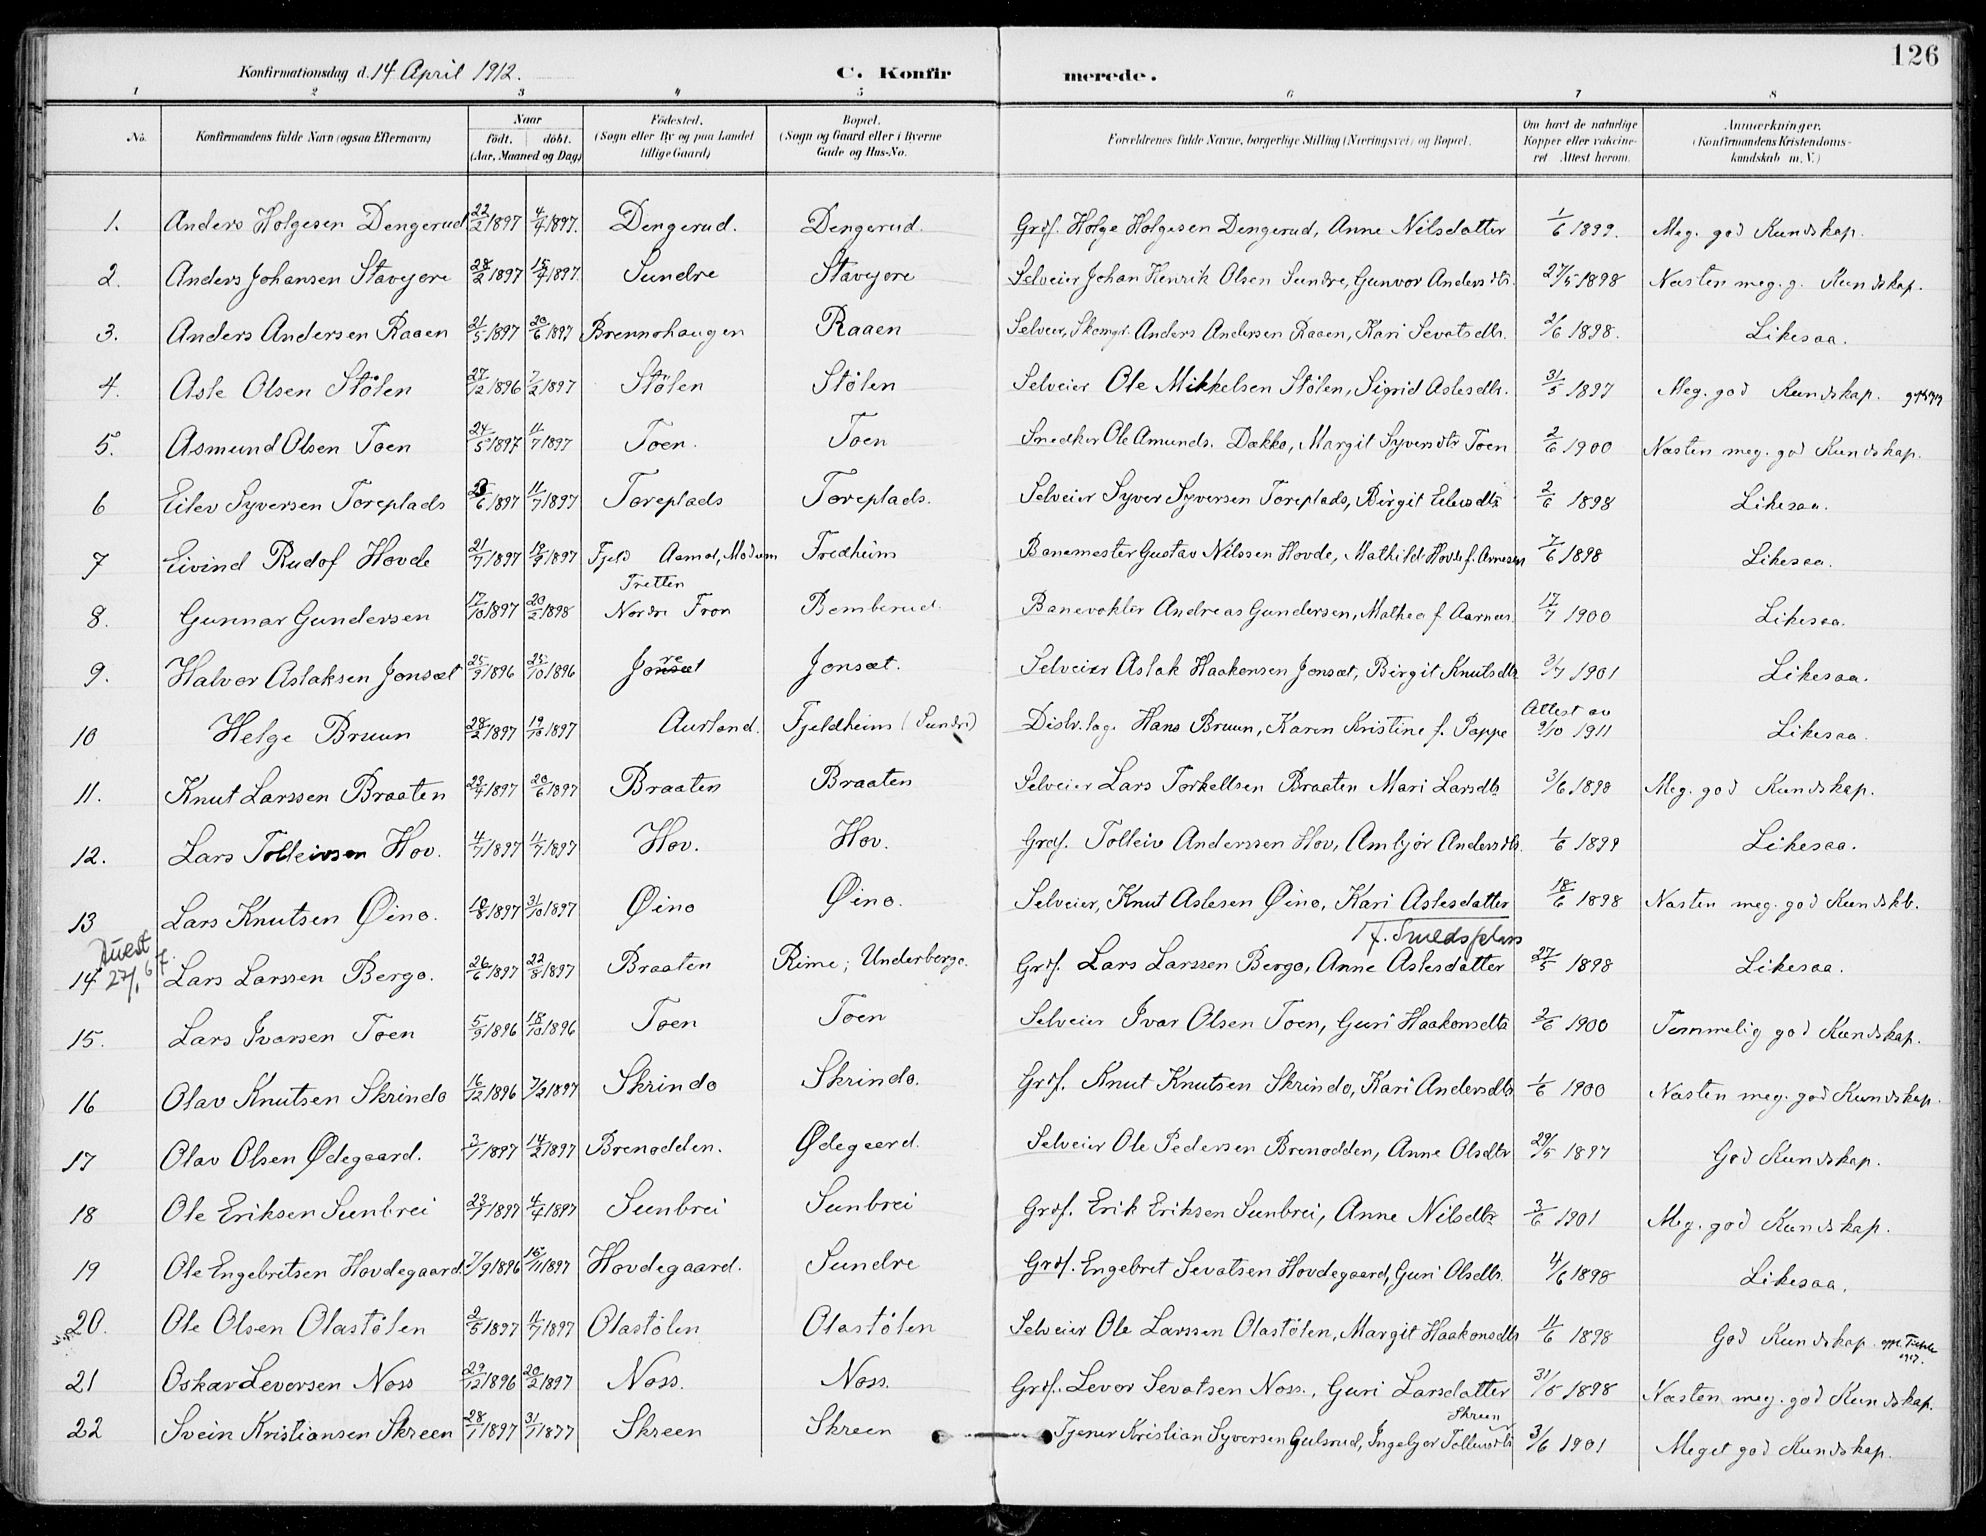 126
Konfirmationsdag d. 14 April 1912. C. Konfirmerede.
1 2 3 4 5 6 7 8
No. Konfirmandens fulde Navn (ogsaa Efternavn) Naar født. døbt. (Aar, Maaned og Dag) Fødested. (Sogn eller By og paa Landet tillige Gaard) Bopæl. (Sogn og Gaard eller i Byerne Gade og Hus-No. Forældrenes fulde Navne, borgerlige Stilling (Næringsvei) og Bopæl. Om havt de naturlige Kopper eller vakcineret Attest herom. Anmærkninger. (Konfirmandens Kristendomskundskab m. V.)
1. Anders Holgesen Dengerud 22/2 1897 4/4 1897. Dengerud. Dengerud. Grdf. Holge Holgesen Dengerud, Anne Nilsdatter 1/6 1899. Meg. god Kundskap.
2. Anders Johansen Stavejore 28/2 1897 15/4 1897. Sundre Stavejore Selveier Johan Henrik Olsen Sundre, Gunvor Andersdtr. 27/5 1898 Næsten meg. g. Kundskap.
3. Anders Andersen Raaen 21/5 1897 20/6 1897 Brennohaugen Raaen Selveier, Skomgr. Anders Andersen Raaen, Kari Sevatsdtr. 2/6 1898. Likesaa.
4. Asle Olsen Stølen 27/12 1896 7/2 1897 Stølen Stølen Selveier Ole Mikkelsen Stølen, Sigrid Aslesdtr. 31/5 1897 Meg. god Kundskap.
5. Asmund Olsen Toen 24/5 1897 11/7 1897 Toen. Toen Snedker Ole Amunds. Dokko, Margit Syversdtr Toen 2/6 1900 Næsten meg. god Kundskap.
6 Eilev Syversen Toreplads /6 1897 11/7 1897 Toreplads Toreplads. Selveier Syver Syversen Toreplads, Birgit Eilevsdtr 2/6 1898 Likesaa.
7 Eivind Rudof Hovde 21/7 1897 12/9 1897 Fjeld Aamot, Modum Fredheim Banemester Gustav Nilssen Hovde, Mathild Hovde f. Arnesen 7/6 1898 Likesaa.
8. Gunnar Gundersen 17/10 1897 20/2 1898 Tretten Nordre Fron Bemberud. Banevokter Andreas Gundersen, Mathea f. Aarnes. 17/7 1900 Likesaa.
9. Halvor Aslaksen Jonsæt 25/9 1896 25/10 1896 Jonsæt re Jonsæt. Selveier Aslak Haakonsen Jonsæt, Birgit Knutsdtr 3/7 1901 Likesaa.
10 Helge Bruun 28/2 1897 19/10 1897 Aurland. Fjeldheim (Sundre) Distr. læg. Hans Bruun, Karen Kristine f. Pappe Attest av 9/10 1911 Likesaa.
11. Knut Larssen Braaten 23/4 1897 20/6 1897 Braaten Braaten Selveier Lars Torkellsen Braaten Mari Larsdtr 3/6 1898 Meg. god Kundskap.
12. Lars Tolleivsen Hov. 4/7 1897 11/7 1897 Hov. Hov. Grdf. Tolleiv Anderssen Hov, Ambjør Andersdtr. 1/6 1899 Likesaa.
13 Lars Knutsen Øino. 10/8 1897 31/10 1897 Øino Øino. Selveier, Knut Aslesen Øino, Kari Aslesdatter 18/6 1898 Næsten meg. god Kundskb.
14 27/6 Lars Larssen Bergo. 26/6 1897 22/8 1897 Braaten Rime; Underbergo. Grdf. Lars Larssen Bergo, Anne Aslesdatter f. Smedsplass 27/5 1898 Likesaa.
15. Lars Ivarsen Toen 5/9 1896 18/10 1896 Toen Toen Selveier Ivar Olsen Toen, Guri Haakonsdtr 2/6 1900 Temmelig god Kundskap.
16 Olav Knutsen Skrindo 16/12 1896 7/2 1897 Skrindo Skrindo. Grdf. Knut Knutsen Skrindo, Kari Andersdtr 1/6 1900 Næsten meg. god Kundskap.
17 Olav Olsen Ødegaard. 3/1 1897 14/2 1897 Brenodden. Ødegaard. Selveier Ole Pedersen Brenodden, Anne Olsdtr 29/5 1897 God Kundskap.
18 Ole Eriksen Sunbrei 23/1 1897 4/4 1897 Sunbrei Sunbrei Grdf. Erik Eriksen Sunbrei, Anne Nilsdtr 3/6 1901 Meg. god Kundskap.
19 Ole Engebritsen Hovdegaard. 7/9 1896 15/11 1897 Hovdegaard. Sundre Grdf. Engebret Sevatsen Hovdegaard, Guri Olsdtr. 4/6 1898 Likesaa.
20. Ole Olsen Olastølen 2/5 1897 11/7 1897 Olastølen Olastølen Selveier Ole Larssen Olastølen, Margit Haakonsdtr 11/6 1898 God Kundskap.
21 Oskar Leversen Noss 29/12 1896 20/2 1897 Noss. Noss. Grdf. Levor Sevatsen Noss., Guri Larsdatter 31/5 1898 Næsten meg. god Kundskap.
22 Svein Kristiansen Skreen 28/1 1897 31/1 1877 Skreen Skreen Tjener Kristian Syversen Gulsrud, Ingebjør Tollevsdtr Skreen 3/6 1901 Meget god Kundskap.